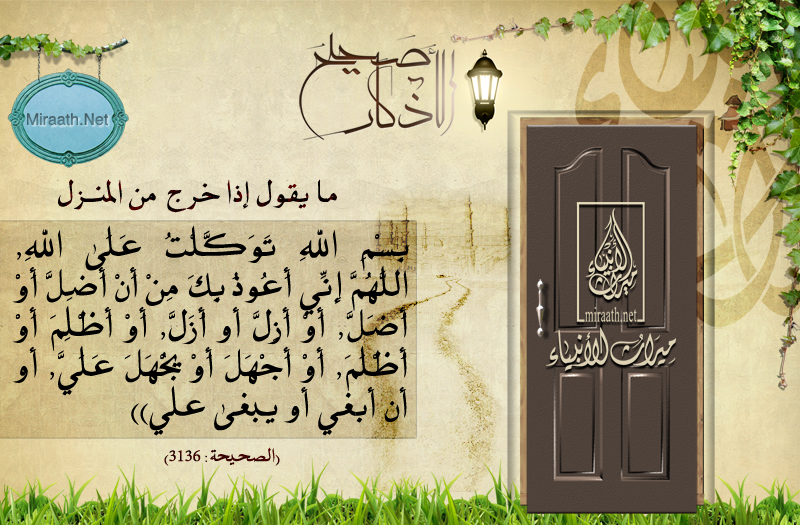 صحيح
الأذكار
Miraath.Net
ما يقول إذا خرج من المنـزل
بِسْمِ اللهِ تَوَكَّلْتُ عَلىٰ اللهِ,
اللَّهُمَّ إنِّي أعُوذُ بِكَ مِنْ أنْ أضِلَّ أوْ
أُضَلَّ, أوْ أزِلَّ أو أُزَلَّ, أوْ أظْلِمَ أوْ
أُظْلَمَ, أوْ أجْهَلَ أوْ يُجْهَلَ عَليَّ, أو
أن أبغي أو يـبغىٰ علي))
(الصحيحة: 3136)
ميراث الأنبياء
miraath.net
ميراث الأنبياء